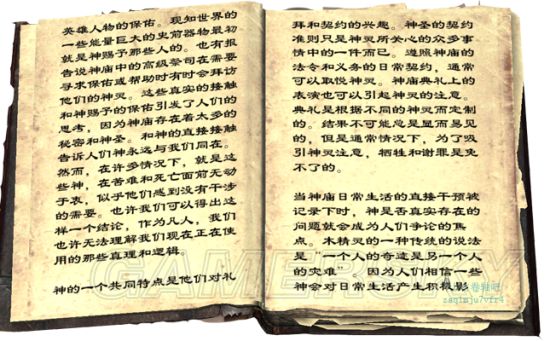 英雄人物的保佑。现知世界的
一些能量巨大的史前器物最初
就是神赐予那些人的。也有报
告说神庙中的高级祭司在需要
寻求保佑或帮助时有时会拜访
他们的神灵。这些真实的接触
和神赐予的保佑引发了人们的
思考，因为神庙存在着太多的
秘密和神圣。和神的直接接触
告诉人们神永远与我们同在。
然而，在许多情况下，就是这
些神，在苦难和死亡面前无动
于衷，似乎他们感到没有干涉
的需要。也许我们可以得出这
样一个结论，作为凡人，我们
也许无法理解我们现在正在使
用的那些真理和逻辑。
神的一个共同特点是他们对礼
拜和契约的兴趣。神圣的契约
准则只是神灵所关心的众多事
情中的一件而已。遵照神庙的
法令和义务的日常契约，通常
可以取悦神灵。神庙典礼上的
表演也可以引起神灵的注意。
典礼是根据不同的神灵而定制
的。结果不可能总是显而易见
的，但是通常情况下，为了吸
引神灵注意，牺牲和谢罪是免
不了的。
当神庙日常生活的直接干预被
记录下时，神是否真实存在的
问题就会成为人们争论的焦
点。木精灵的一种传统的说法
是“一个人的奇迹是另一个人
的灾难”。因为人们相信一些
神会对日常生活产生积极影
GAMERSKY